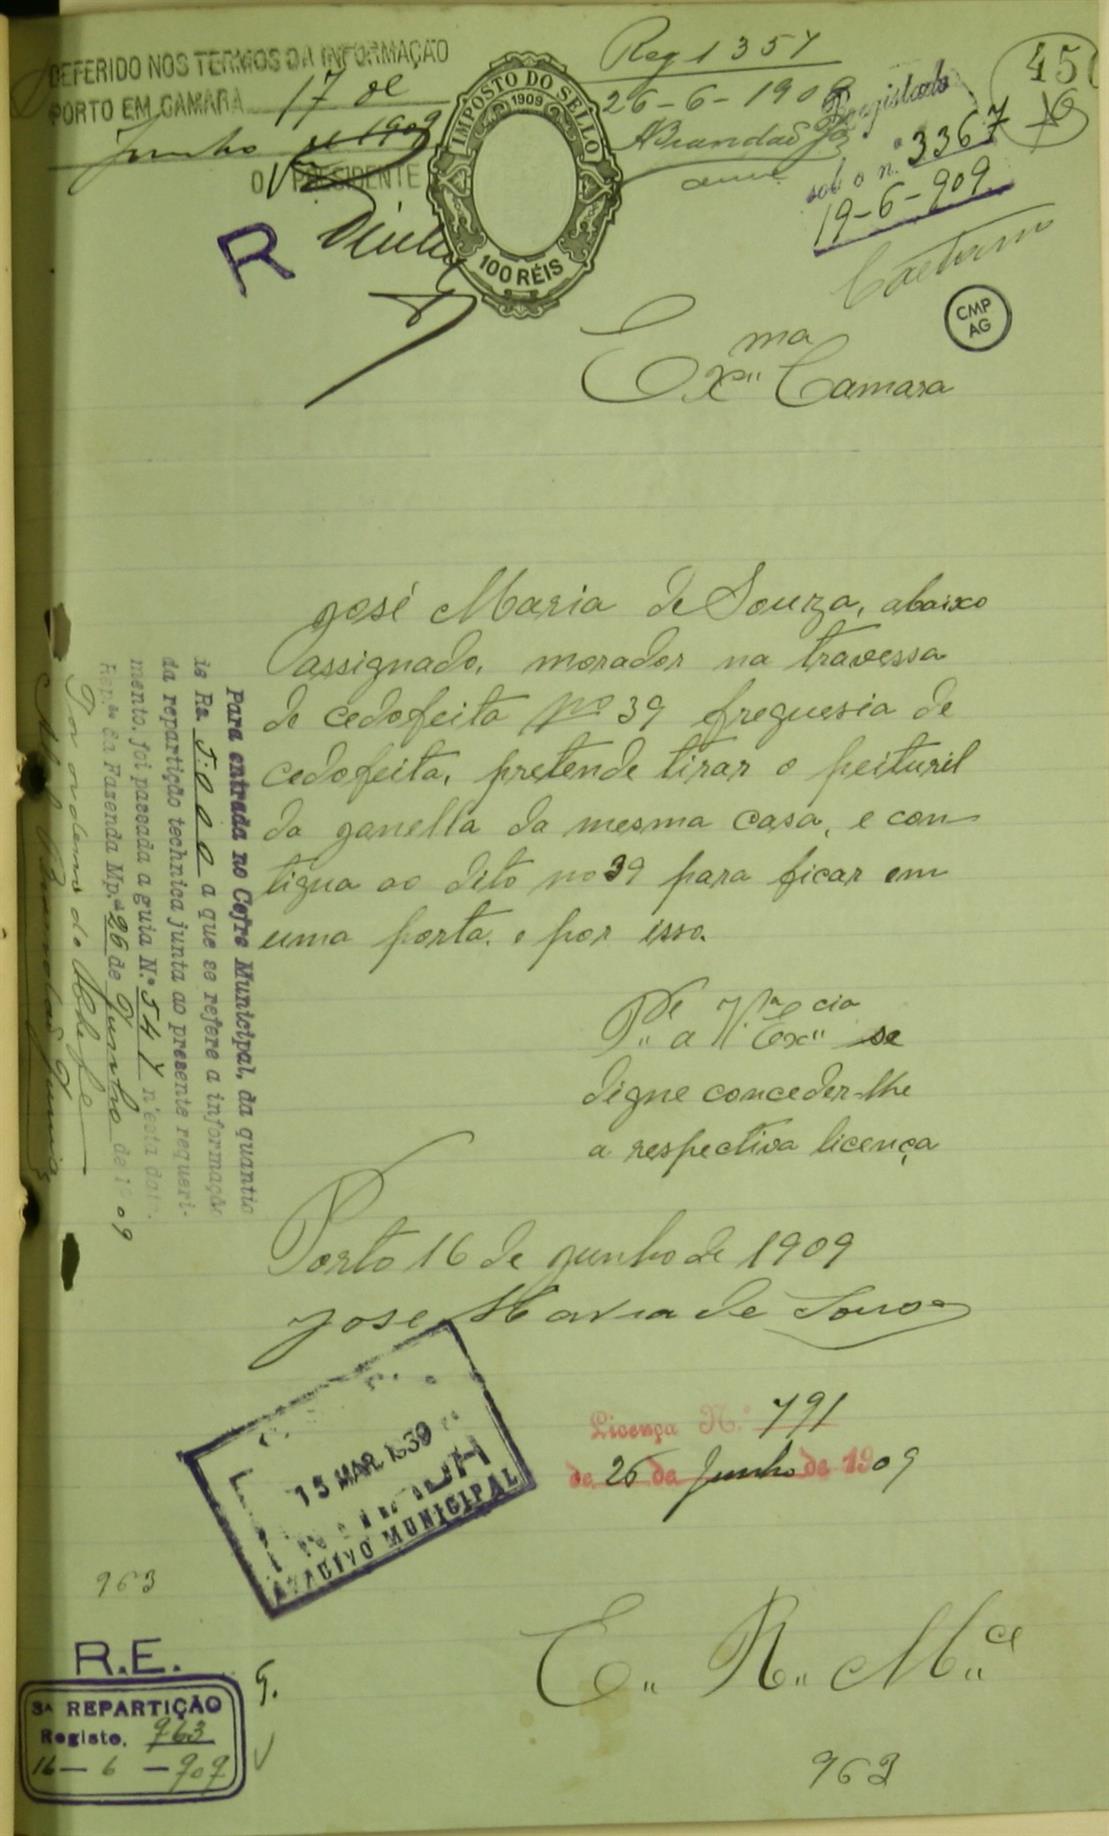 DEFERIDO NOS TERMOS DA INFORMAÇÃO
PORTO EM CAMARA 17 de
Junho de 1909
O PRESIDENTE
R
IMPOSTO DO SELLO
1909
100 RÉIS
Reg 1357
26-6-1909
Registado
sob o n.º 3367
19-6-909
Caetano
45
CMP
AG
Ex.ma Camara
José Maria de Souza, abaixo
assignado, morador na travessa
de cedofeita nº 39 freguesia de
cedofeita, pretende tirar o peituril
da ganella da mesma casa, e con
tigua ao dito nº 39 para ficar em
uma porta. e por isso.
P.de a V.ª Ex.cia se
digne conceder-lhe
a respectiva licença
Porto 16 de gunho de 1909
Jose Maria de Souza
Para entrada no Cofre Municipal, da quantia
de Rs. 5.000 a que se refere a informação
da repartição technica junta ao presente requeri-
mento, foi passada a guia N.º 547 n'esta data.
Rep.ão da Fazenda Mp.al 26 de Junho de 1909
Por ordem do Chefe
Licença N.º 791
de 26 de Junho de 1909
15 MAR 1939
ARQUIVO MUNICIPAL
963
R.E.
3ª REPARTIÇÃO
Registo. 963
16-6-909
E. R. M.ce
963